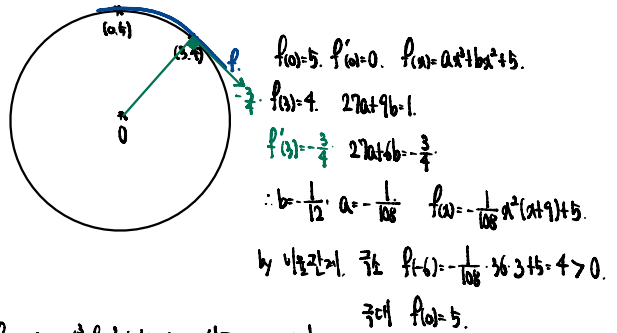 (0,5)
(3,4)
f.
-3/4.
0
f(0)=5. f'(0)=0. f(x)=ax³+bx²+5.
f(3)=4. 27a+9b=1.
f'(3)=-3/4 27a+6b=-3/4.
∴ b=-1/12. a=-1/108. f(x)=-1/108 x²(x+9)+5.
by 비율관계. 극소 f(-6)=-1/108·36·3+5=4>0.
극대 f(0)=5.